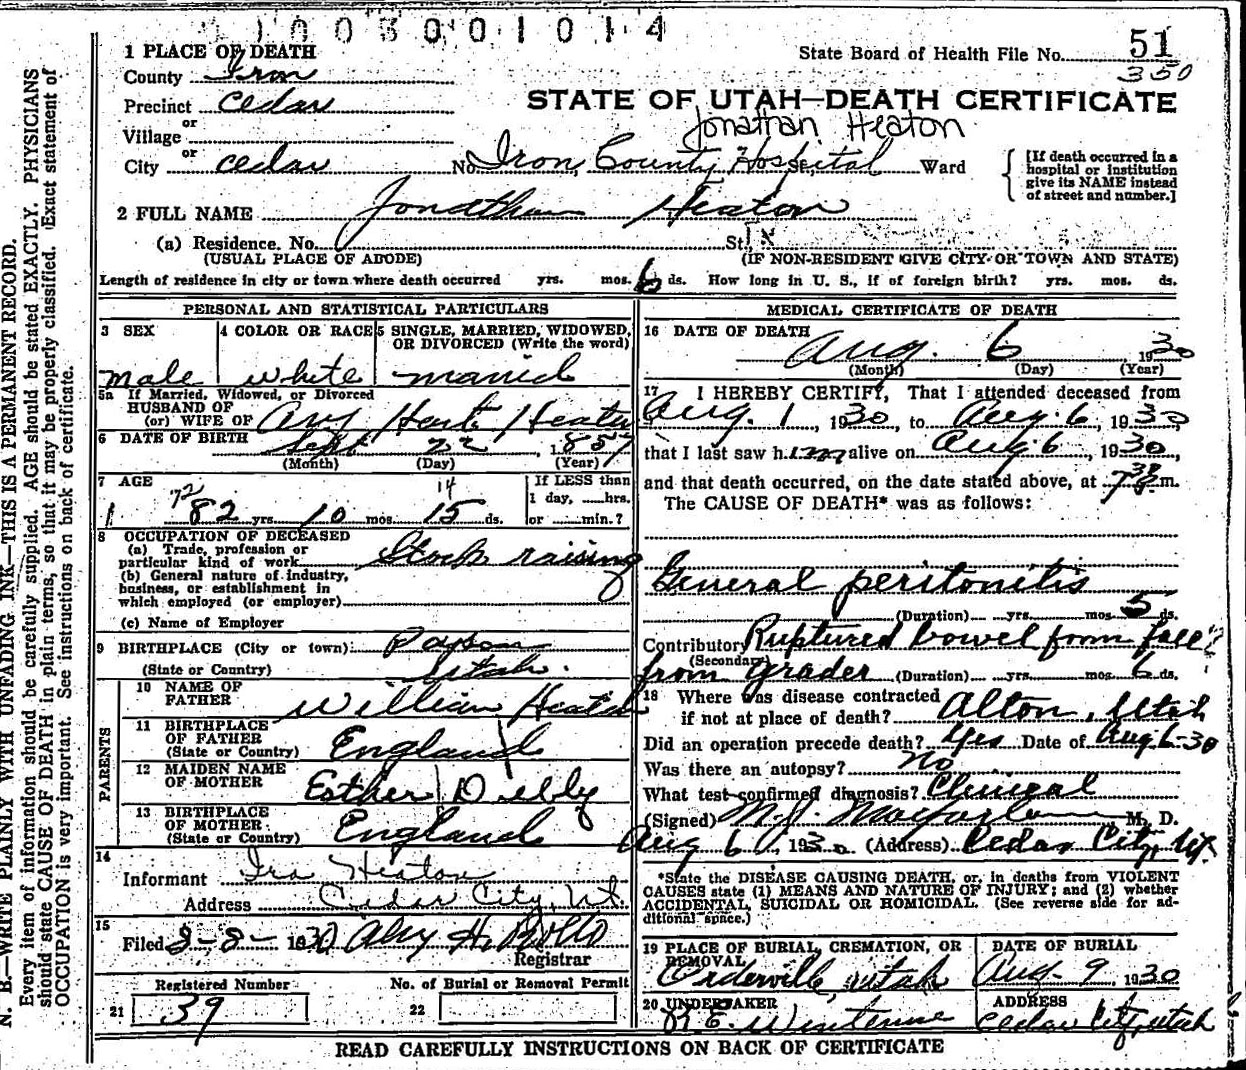 1 0 0 3 0 0 1 0 1 4
State Board of Health File No. 51
350
1 PLACE OF DEATH
County Iron
Precinct Cedar
or
Village
or
City Cedar No. Iron County Hospital St. Ward
STATE OF UTAH—DEATH CERTIFICATE
Jonathan Heaton
[If death occurred in a
hospital or institution
give its NAME instead
of street and number.]
2 FULL NAME Jonathan Heaton
(a) Residence. No. St.
(USUAL PLACE OF ABODE) (IF NON-RESIDENT GIVE CITY OR TOWN AND STATE)
Length of residence in city or town where death occurred yrs. mos. 6 ds. How long in U. S., if of foreign birth? yrs. mos. ds.
PERSONAL AND STATISTICAL PARTICULARS
3 SEX
male
4 COLOR OR RACE
white
5 SINGLE, MARRIED, WIDOWED,
OR DIVORCED (Write the word)
married
5a If Married, Widowed, or Divorced
HUSBAND OF
(or) WIFE OF Amy Hoat Heaton
6 DATE OF BIRTH Sept 22, 1857
(Month) (Day) (Year)
7 AGE
72 14
82 yrs. 10 mos. 15 ds.
If LESS than
1 day, hrs.
or min.?
8 OCCUPATION OF DECEASED
(a) Trade, profession or
particular kind of work Stock raising
(b) General nature of industry,
business, or establishment in
which employed (or employer)
(c) Name of Employer
9 BIRTHPLACE (City or town) Payson
(State or Country) Utah.
PARENTS
10 NAME OF
FATHER William Heaton
11 BIRTHPLACE
OF FATHER
(State or Country) England
12 MAIDEN NAME
OF MOTHER Esther
13 BIRTHPLACE
OF MOTHER.
(State or Country) England
14
Informant Ira Heaton
Address Cedar City, Ut.
15
Filed 8-8- 1930
Registrar
Registered Number
21 39
No. of Burial or Removal Permit
22
MEDICAL CERTIFICATE OF DEATH
16 DATE OF DEATH
Aug. 6 1930
(Month) (Day) (Year)
17 I HEREBY CERTIFY, That I attended deceased from
Aug. 1, 1930, to Aug. 6, 1930
that I last saw him alive on Aug 6, 1930,
and that death occurred, on the date stated above, at 7 30 m.
The CAUSE OF DEATH* was as follows:
General peritonitis
(Duration) yrs. mos. 5 ds.
Contributory Ruptured bowel from fall?
(Secondary)
from grader (Duration) yrs. mos. 6 ds.
18 Where was disease contracted
if not at place of death? Alton, Utah
Did an operation precede death? Yes Date of Aug 6-30
Was there an autopsy? No
What test confirmed diagnosis? Clinical
(Signed) M. J. Macfarlane M. D.
Aug 6, 1930 (Address) Cedar City, Ut.
*State the DISEASE CAUSING DEATH, or, in deaths from VIOLENT
CAUSES state (1) MEANS AND NATURE OF INJURY; and (2) whether
ACCIDENTAL, SUICIDAL OR HOMICIDAL. (See reverse side for ad-
ditional space.)
19 PLACE OF BURIAL, CREMATION, OR
REMOVAL
Orderville, Utah
DATE OF BURIAL
Aug. 9 1930
20 UNDERTAKER
ADDRESS
Cedar City, Utah
READ CAREFULLY INSTRUCTIONS ON BACK OF CERTIFICATE
N. B.—WRITE PLAINLY WITH UNFADING INK—THIS IS A PERMANENT RECORD.
Every item of information should be carefully supplied. AGE should be stated EXACTLY. PHYSICIANS
should state CAUSE OF DEATH in plain terms, so that it may be properly classified. Exact statement of
OCCUPATION is very important. See instructions on back of certificate.